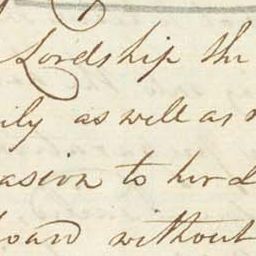 Lordship th
ily as well as
asion to her L
board without